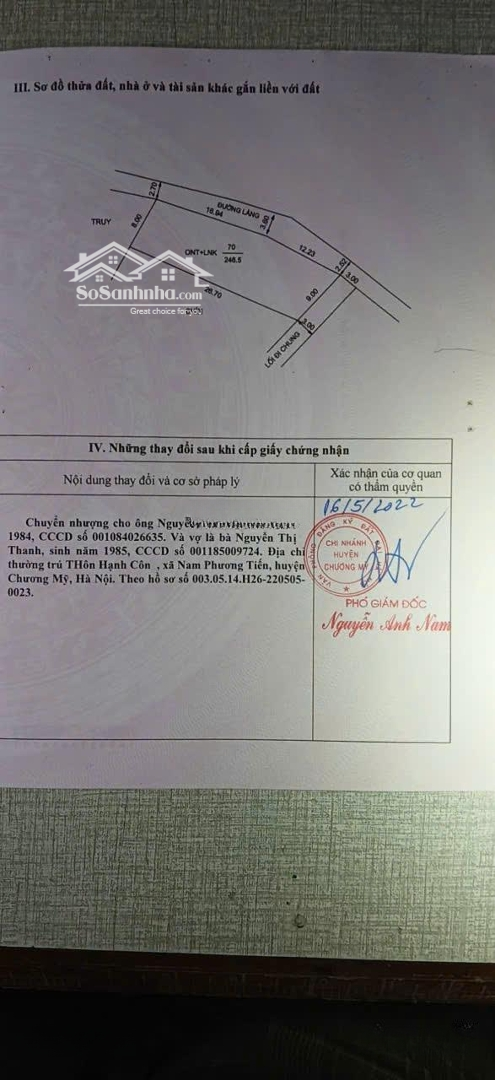 III. Sơ đồ thửa đất, nhà ở và tài sản khác gắn liền với đất
2.70
ĐƯỜNG LÀNG
TRUY
8.00
16.94
3.60
12.23
ONT+LNK 70
248.5
3.00
9.00
28.70
3.00
LỐI ĐI CHUNG
SoSanhnha.com
Great choice for you
IV. Những thay đổi sau khi cấp giấy chứng nhận
Nội dung thay đổi và cơ sở pháp lý
Xác nhận của cơ quan
có thẩm quyền
Chuyển nhượng cho ông
1984, CCCD số 001084026635. Và vợ là bà Nguyễn Thị
Thanh, sinh năm 1985, CCCD số 001185009724. Địa chỉ
thường trú THôn Hạnh Côn , xã Nam Phương Tiến, huyện
Chương Mỹ, Hà Nội. Theo hồ sơ số 003.05.14.H26-220505-
0023.
16/5/2022
VĂN PHÒNG ĐĂNG KÝ ĐẤT ĐAI
CHI NHÁNH
HUYỆN
CHƯƠNG MỸ
PHÓ GIÁM ĐỐC
Nguyễn Anh Nam